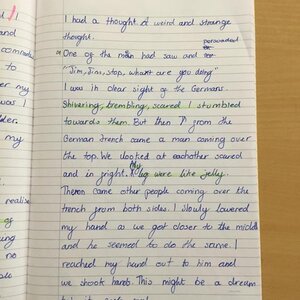 I had a thought. A weird and strange
thought.
persuaded
One of the man had saw and
"Jim, Jim, stop, whant are you doing"
I was in clear sight of the Germans.
Shivering, trembling, scared I stumbled
towards them. But then ↑ from the
German trench came a man coming over
the top. We looked at eachother scared
and in fright. My leg were like jelly.
Theren came other people coming over the
trench from both sides. I slowly lowered
my hand as we got closer to the middle
and he seemed to do the same. I
reached my hand out to him and
we shook hands. This might be a dream